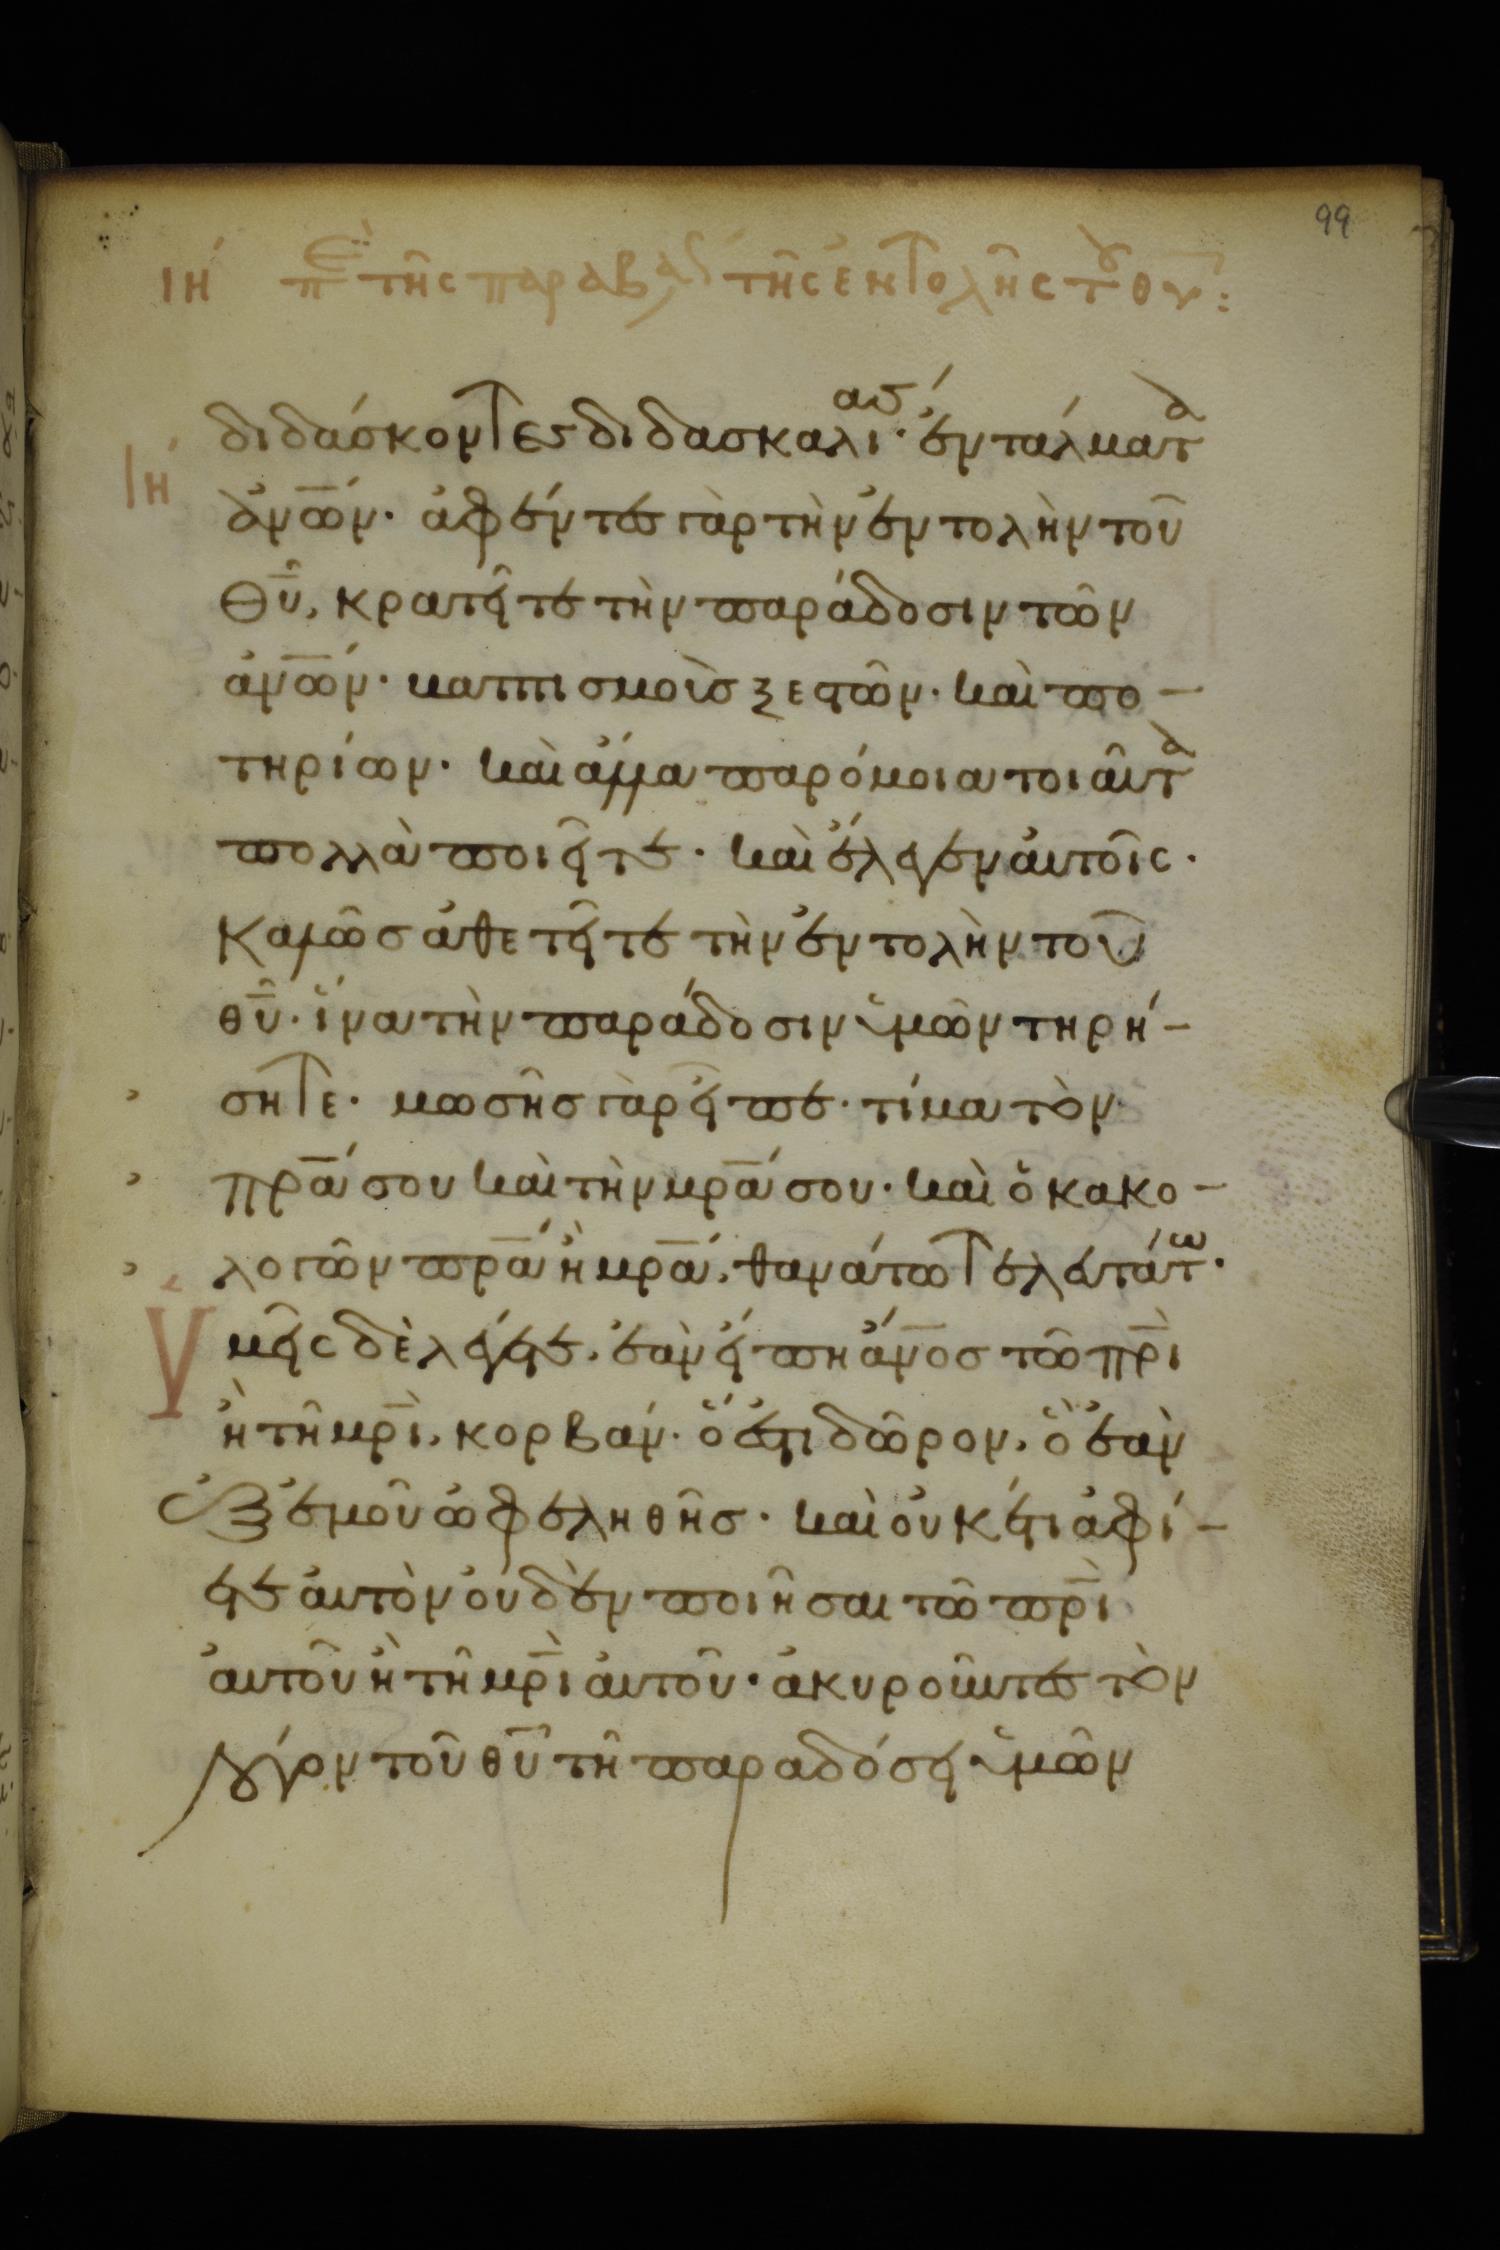 99
ιη πε τῆς παραβάς τῆς ἐντολῆς τοῦ θυ:
διδάσκοντες διδασκαλίας· ἐντάλματα
ιη
ἀνων· ἀφέντες γὰρ τὴν ἐντολὴν τοῦ
θυ, κρατεῖτε τὴν παράδοσιν τῶν
ἀνων· βαπτισμοὺς ξεστῶν· καὶ πο-
τηρίων· καὶ ἄλλα παρόμοια τοιαῦτα
πολλὰ ποιεῖτε· καὶ ἔλεγεν αὐτοῖς·
καλῶς ἀθετεῖτε τὴν ἐντολὴν τοῦ
θυ· ἵνα τὴν παράδοσιν ὑμῶν τηρή-
σητε· μωσῆς γὰρ εἶπε· τίμα τὸν
πρα σου καὶ τὴν μρα σου· καὶ ὁ κακο-
λογῶν πρα ἢ μρα, θανάτω τελευτάτω·
Ὑμεῖς δὲ λέγετε, ἐὰν εἴπη ἄνος τῶ πρι
ἢ τῆ μρι, κορβάν· ὅ ἐστι δῶρον, ὃ ἐὰν
ἐξ ἐμοῦ ὠφεληθῆς· καὶ οὐκέτι ἀφί-
ετε αὐτὸν οὐδὲν ποιῆσαι τῶ πρι
αὐτοῦ ἢ τῆ μρι αὐτοῦ· ἀκυροῦντες τὸν
λόγον τοῦ θυ τῆ παραδόσει ὑμῶν